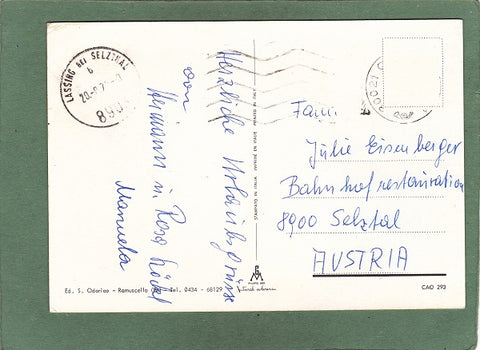 LASSING BEI SELZTHAL
Herzliche Urlaubsgrüsse
von
Hermann u. Rosa
Manuela
Fam.
Julie Eisenberger
Bahnhofrestauration
8900 Selztal
AUSTRIA
STAMPATO IN ITALIA
Ed. S. Odorico - Ramuscello - Tel. 0434 - 68129
CAO 293